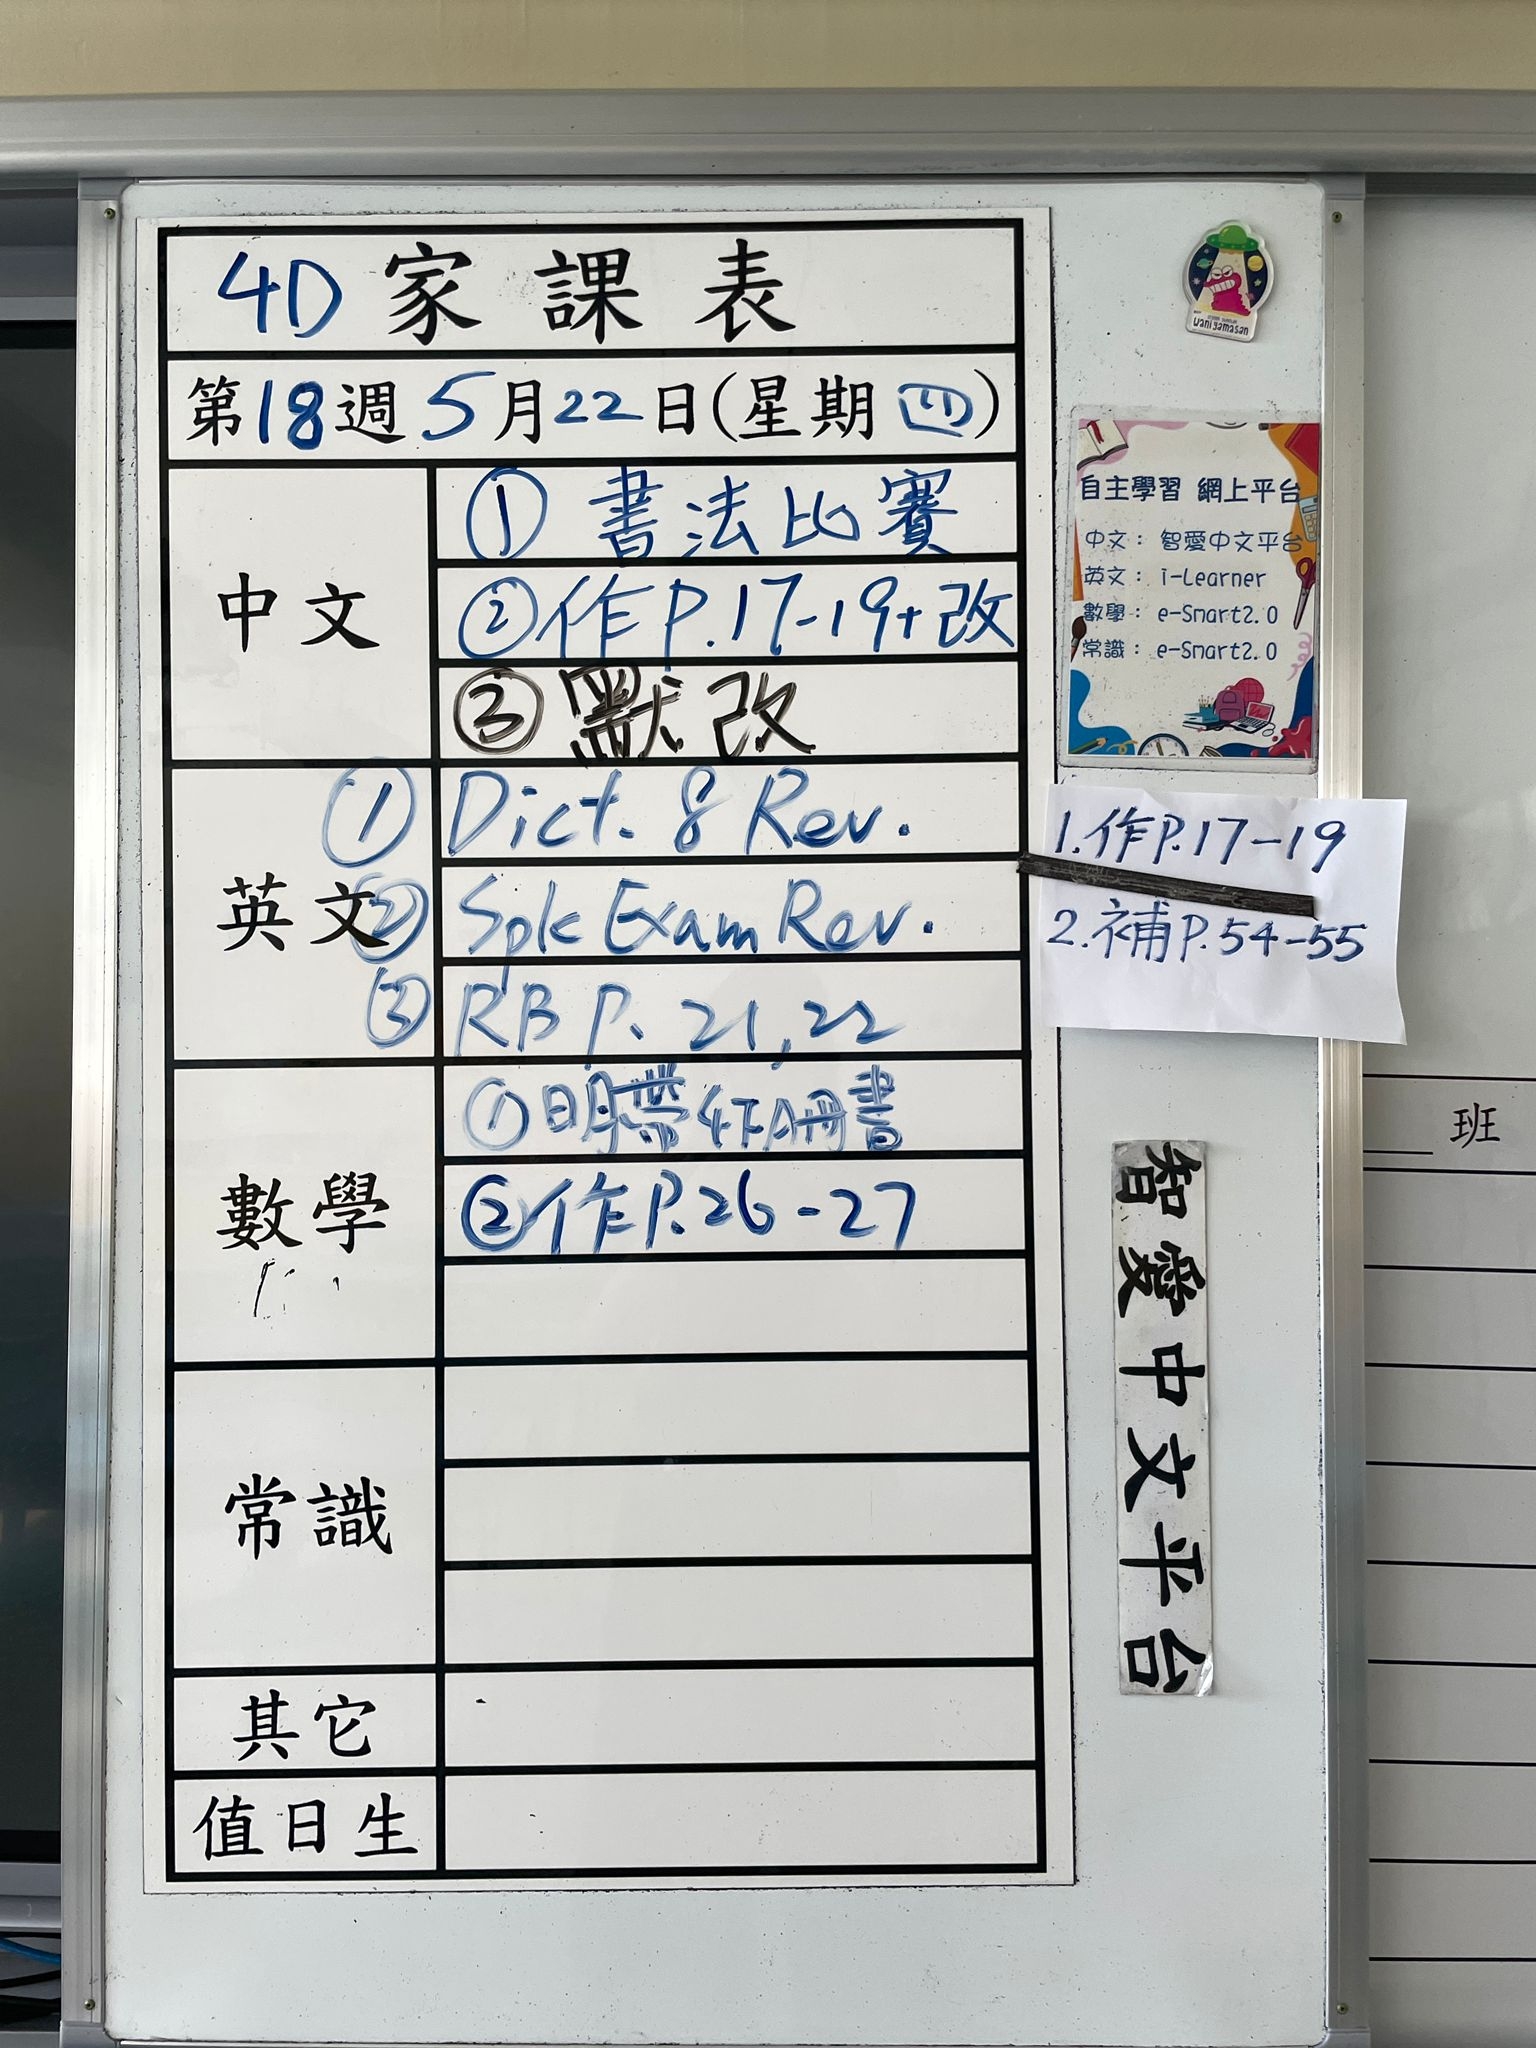 4D 家課表
第18週 5月22日(星期四)
中文
① 書法比賽
② 作P.17-19+改
③ 默改
英文
① Dict. 8 Rev.
② Spk Exam Rev.
③ RB P. 21, 22
數學
① 明帶4下A冊書
② 作P.26-27
常識
其它
值日生
wani yamasan
自主學習 網上平台
中文： 智愛中文平台
英文： i-Learner
數學： e-Smart2.0
常識： e-Smart2.0
1.作P.17-19
2.補P.54-55
智愛中文平台
班